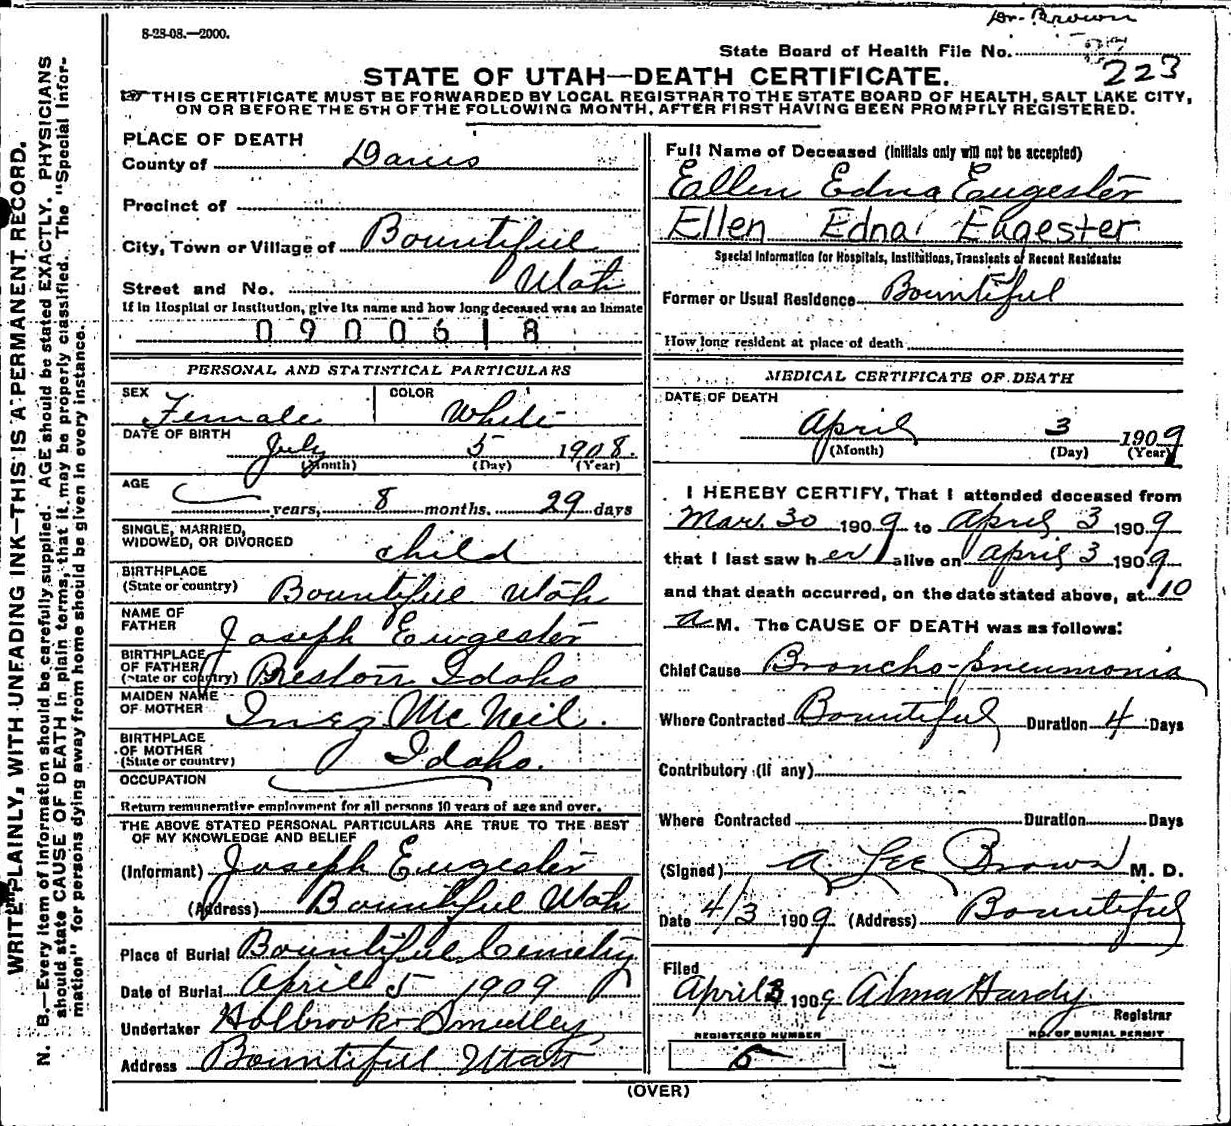 Dr. Brown
8-28-08.—2000.
State Board of Health File No.
223
STATE OF UTAH—DEATH CERTIFICATE.
THIS CERTIFICATE MUST BE FORWARDED BY LOCAL REGISTRAR TO THE STATE BOARD OF HEALTH, SALT LAKE CITY,
ON OR BEFORE THE 5TH OF THE FOLLOWING MONTH, AFTER FIRST HAVING BEEN PROMPTLY REGISTERED.
WRITE PLAINLY, WITH UNFADING INK—THIS IS A PERMANENT RECORD.
N. B.—Every item of information should be carefully supplied. AGE should be stated EXACTLY. PHYSICIANS
should state CAUSE OF DEATH in plain terms, that it may be properly classified. The "Special Infor-
mation" for persons dying away from home should be given in every instance.
PLACE OF DEATH
County of Davis
Precinct of
City, Town or Village of Bountiful
Street and No. Utah
If in Hospital or Institution, give its name and how long deceased was an Inmate
0900618
PERSONAL AND STATISTICAL PARTICULARS
SEX Female COLOR White
DATE OF BIRTH July 5 1908.
(Month) (Day) (Year)
AGE years, 8 months. 29 days
SINGLE, MARRIED,
WIDOWED, OR DIVORCED child
BIRTHPLACE
(State or country) Bountiful Utah
NAME OF
FATHER Joseph Eugester
BIRTHPLACE
OF FATHER
(State or country) Preston Idaho
MAIDEN NAME
OF MOTHER Inez McNeil.
BIRTHPLACE
OF MOTHER
(State or country) Idaho.
OCCUPATION
Return remunerative employment for all persons 10 years of age and over.
THE ABOVE STATED PERSONAL PARTICULARS ARE TRUE TO THE BEST
OF MY KNOWLEDGE AND BELIEF
(Informant) Joseph Eugester
(Address) Bountiful Utah
Place of Burial Bountiful Cemetry
Date of Burial April 5 1909
Undertaker Holbrook Smedley
Address Bountiful Utah
Full Name of Deceased (Initials only will not be accepted)
Ellen Edna Eugester
Ellen Edna Eugester
Special Information for Hospitals, Institutions, Transients or Recent Residents:
Former or Usual Residence Bountiful
How long resident at place of death
MEDICAL CERTIFICATE OF DEATH
DATE OF DEATH
April 3 1909
(Month) (Day) (Year)
I HEREBY CERTIFY, That I attended deceased from
Mar. 30 1909 to April 3 1909
that I last saw her alive on April 3 1909
and that death occurred, on the date stated above, at 10
a M. The CAUSE OF DEATH was as follows:
Chief Cause Broncho-pneumonia
Where Contracted Bountiful Duration 4 Days
Contributory (if any)
Where Contracted Duration Days
(Signed) A Lee Brown M. D.
Date 4/3 1909 (Address) Bountiful
Filed
April 3 1909 Alma Hardy
Registrar
REGISTERED NUMBER NO. OF BURIAL PERMIT
5
(OVER)